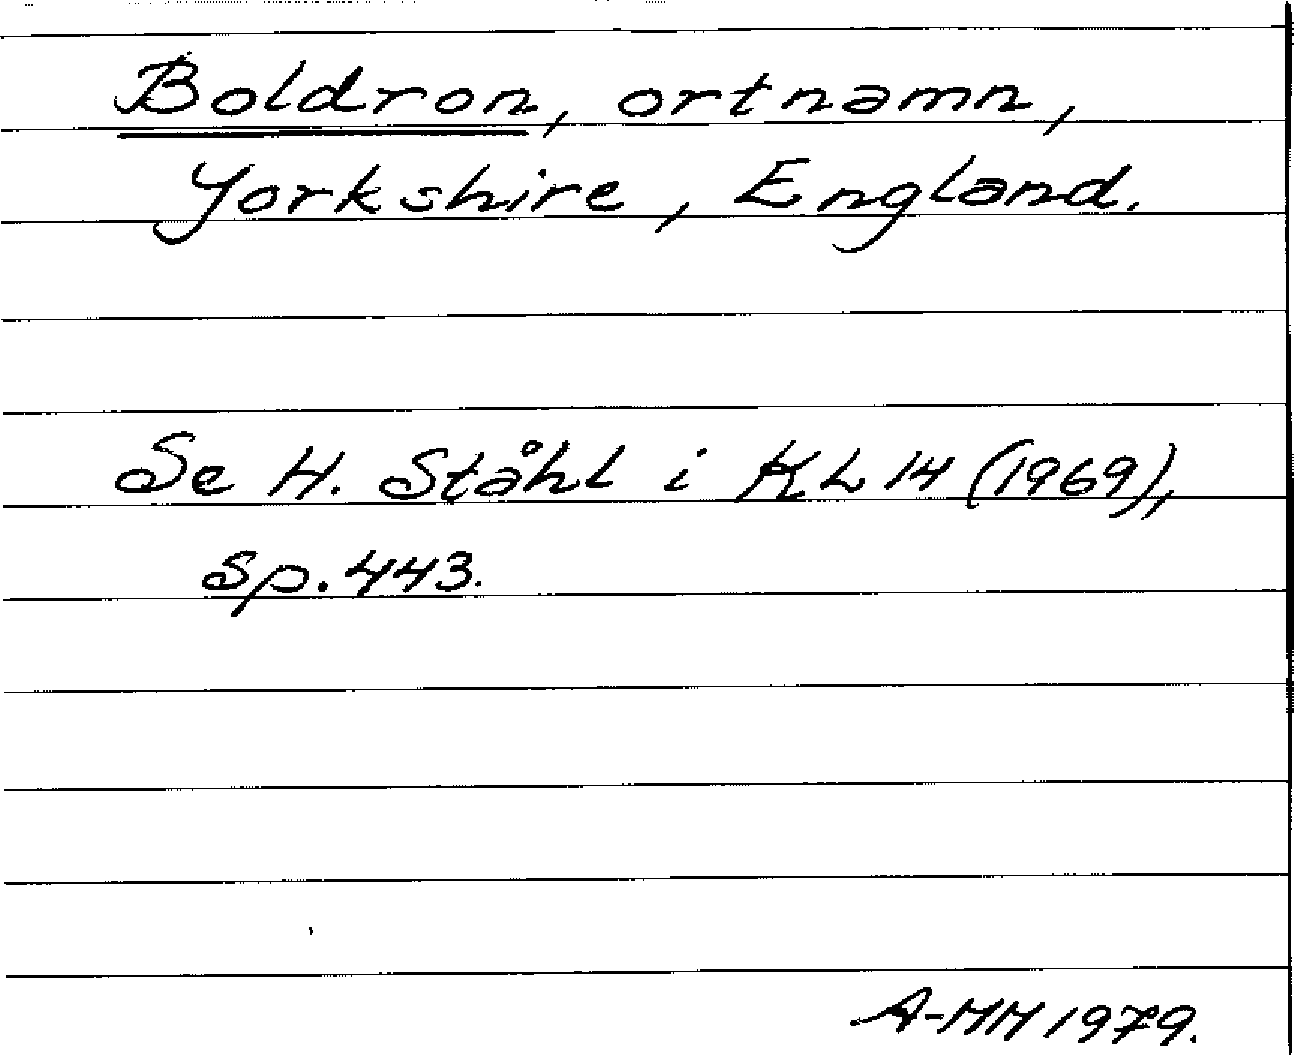 Boldron, ortnamn,
Yorkshire, England.
Se H. Ståhl i KL 14 (1969),
sp. 443.
A-MM 1979.